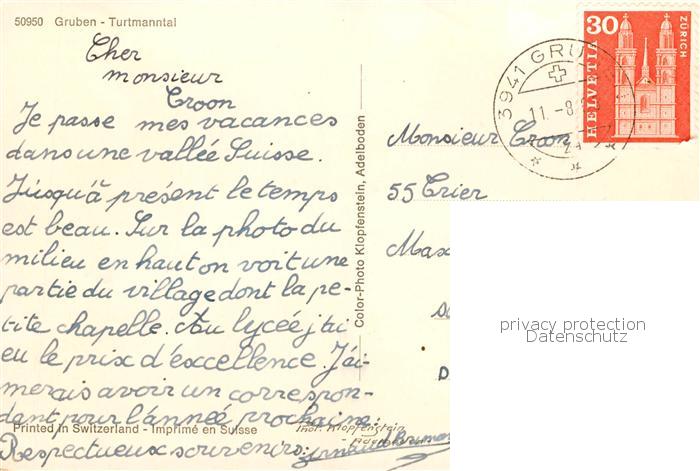 50950 Gruben - Turtmanntal
Cher
monsieur
Croon
Je passe mes vacances
dans une vallée Suisse.
Jusqu'à présent le temps
est beau. Sur la photo du
milieu en haut on voit une
partie du village dont la pe-
tite chapelle. Au lycée j'ai
eu le prix d'excellence. J'ai-
merais avoir un correspon-
dant pour l'année prochaine.
Printed in Switzerland - Imprimé en Suisse
Respectueux souvenirs:
Color-Photo Klopfenstein, Adelboden
3941 GRU
11.-8.
30
HELVETIA
ZÜRICH
Monsieur Croon
55 Trier
Max
D
privacy protection
Datenschutz
Klopfenstein